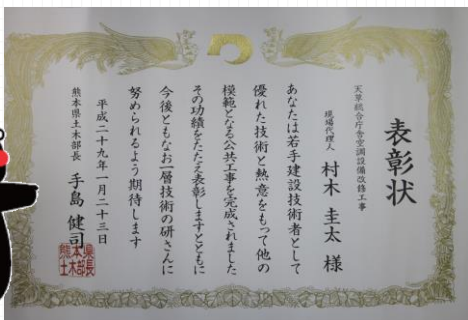 表彰状
天草総合庁舎空調設備改修工事
現場代理人　村木　圭太　様
あなたは若手建設技術者として
優れた技術と熱意をもって他の
模範となる公共工事を完成されました
その功績をたたえ表彰しますとともに
今後ともなお一層技術の研さんに
努められるよう期待します
平成二十九年一月二十三日
熊本県土木部長　手島　健司
熊本県土木部長